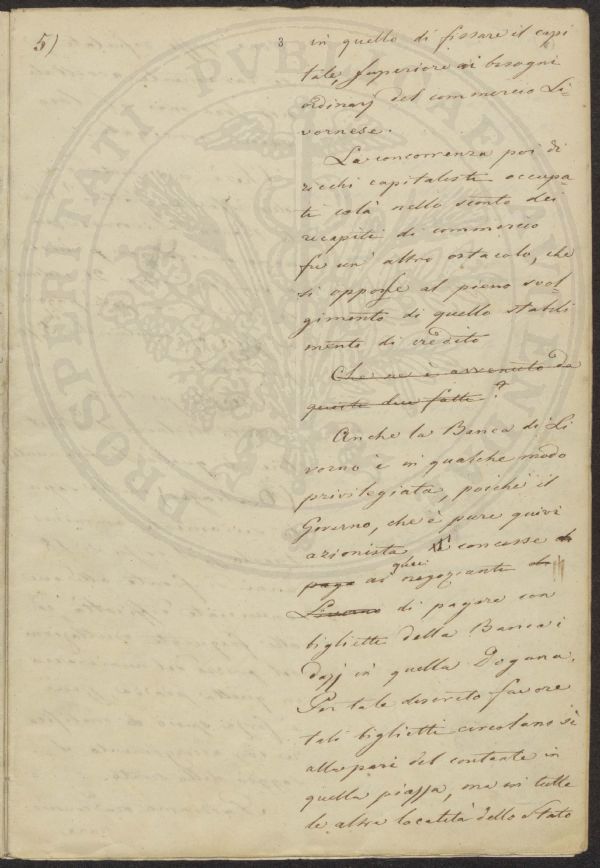 5)
3
in quello di fissare il capi
tale, superiore ai bisogni
ordinarj del commercio Li-
vornese.
La concorrenza poi di
ricchi capitalisti occupa-
ti colà nello sconto dei
recapiti di commercio
fu un' altro ostacolo, che
si oppose al pieno svol-
gimento di quello stabili
mento di credito
Che ne è avvenuto da
queste due fatti?
Anche la Banca di Li
vorno è in qualche modo
privilegiata, poichè il
Governo, che è pure quivi
azionista, concesse di
paga ai negozianti di
Livorno di pagare con
biglietti della Banca i
dazj in quella Dogana.
Per tale discreto favore
tali biglietti circolano sì
alla pari del contante in
quella piazza, ma in tutte
le altre località dello Stato
PROSPERITATI PUBLICAE